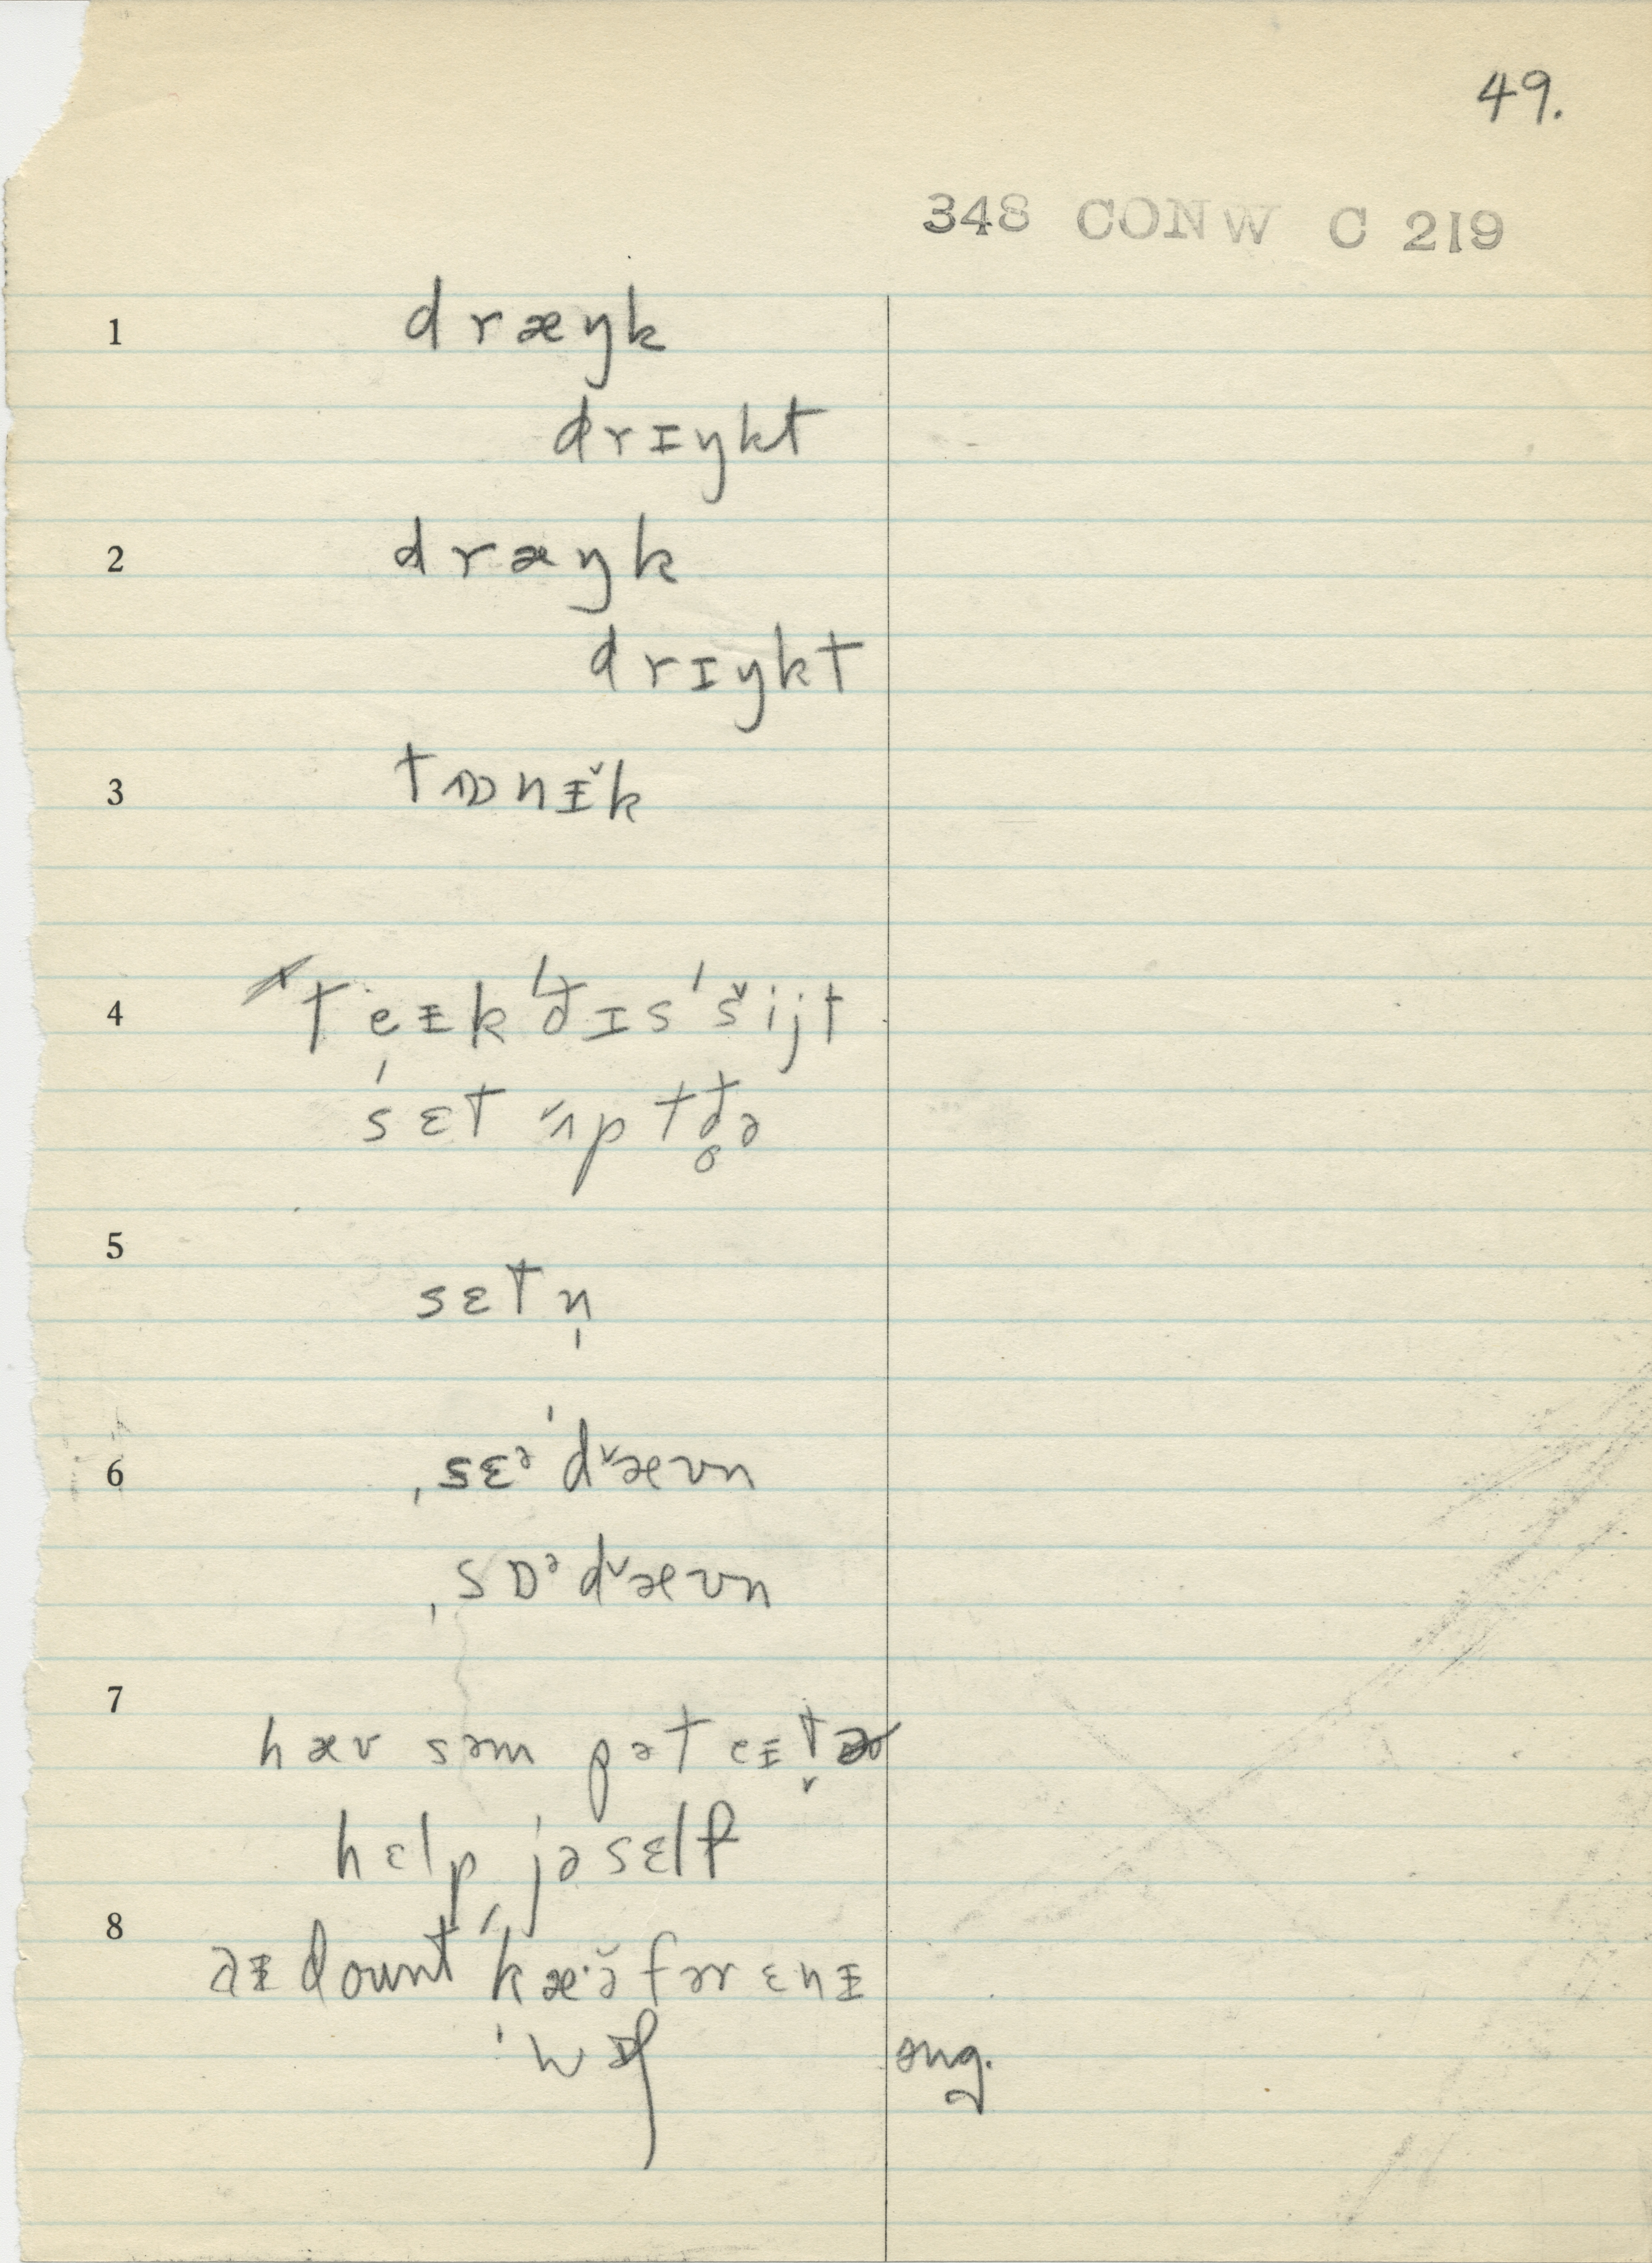 49.
348 CONW C 219
1 dræŋk
drɪŋkt
2 dræŋk
drɪŋkt
3 tɒnᵻ̌k
4 teᵻk 'ðɪs 'šijt
'sɛt ʌ̌p tð̥ə
5 sɛtn̩
6 ˌsɛᵊ'dæ̌ʊn
ˌsɒᵊdæ̌ʊn
7 hæv səm pəteᵻt̬ə
hɛlp jəsɛlf
8 aᵻ doʊnt 'kæ·ə̌ fər ɛnᵻ
'hwᵻl̩ sug.